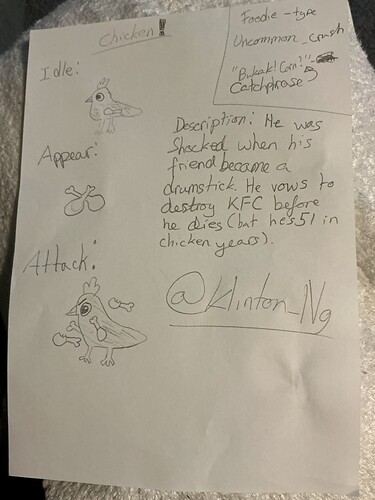 Chicken!
Foodie-type
Uncommon_Crush
"Bukaak! Corn?"-
Catchphrase
Idle:
Appear:
Attack:
Description: He was
Shocked when his
friend became a
drumstick. He vows to
destroy KFC before
he dies (but he's 51 in
chicken years).
@Klinton_Ng